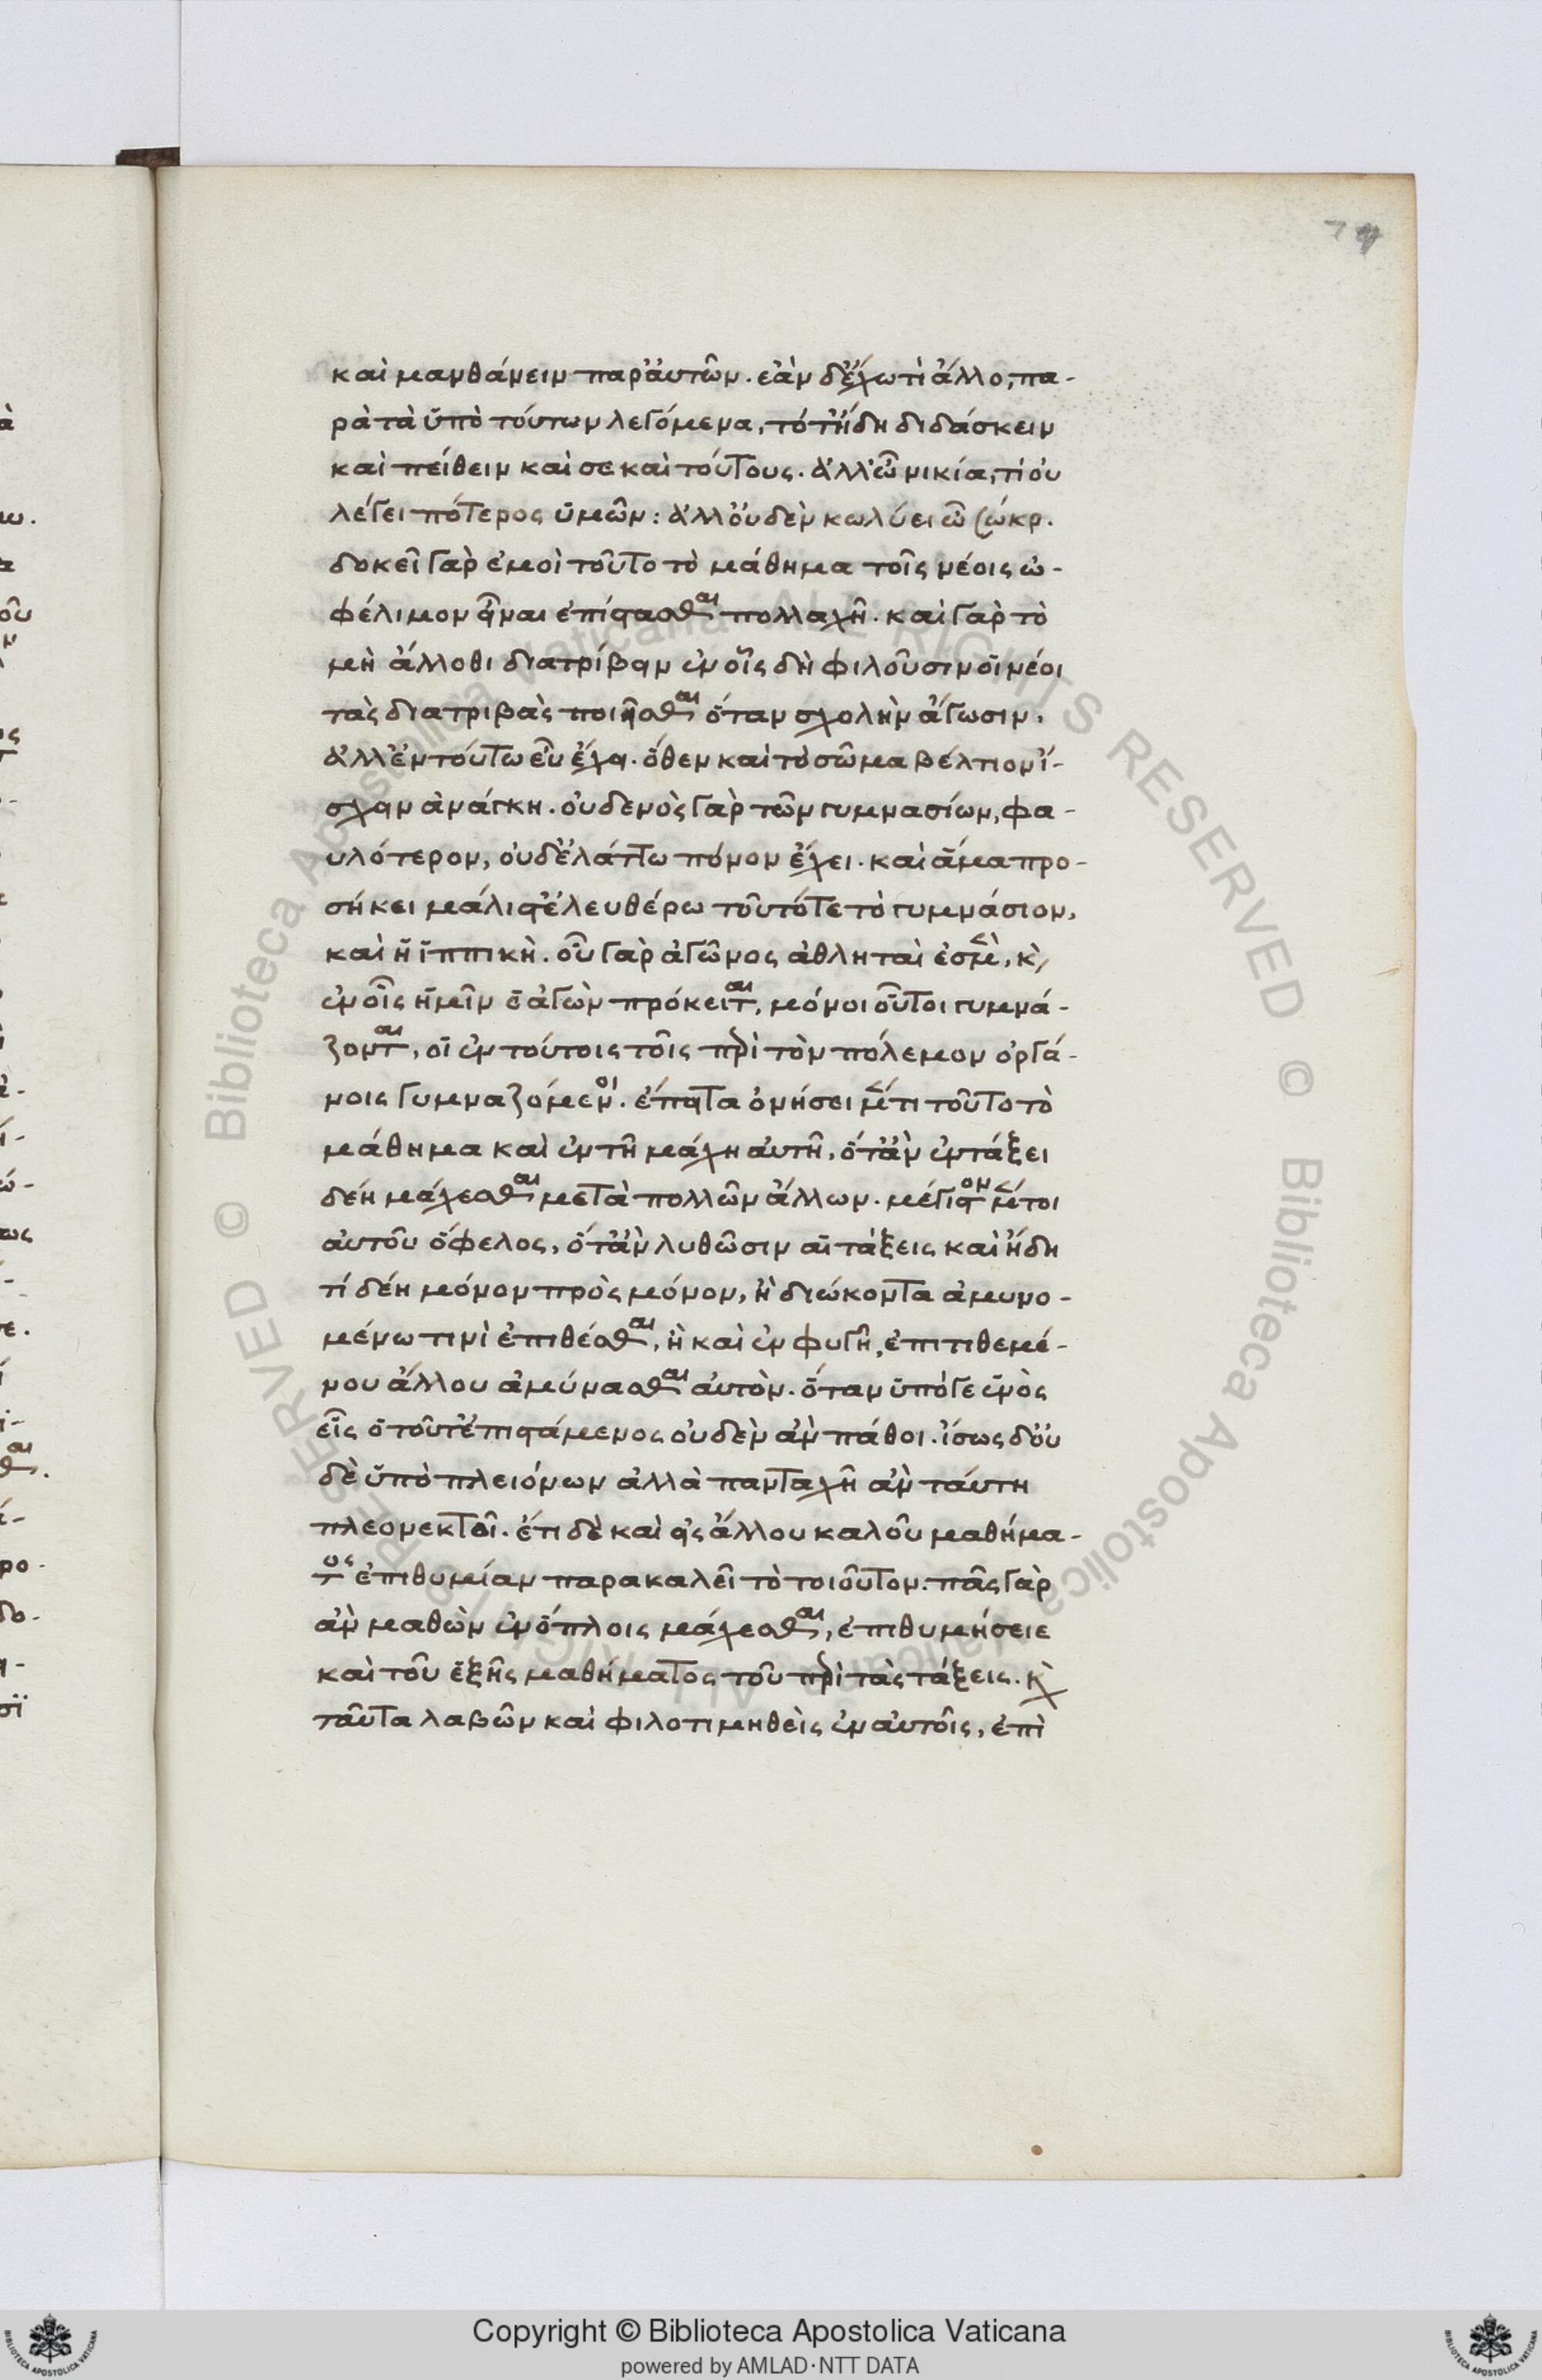 74
καὶ μανθάνειν παρ' ἀυτῶν. εὰν δ' ἔχω τὶ ἄλλο, πα-
ρὰ τὰ ὑπὸ τόυτων λεγόμενα, τότ' ἤδη διδάσκειν
καὶ πείθειν καὶ σε καὶ τόυτους. ἀλλ' ὦ νικία, τί ου
λέγει πότερος ὑμῶν: ἀλλ' ὀυδὲν κωλύει ὦ σώκρ.
δοκεῖ γὰρ ἐμοὶ τοῦτο τὸ μάθημα τοῖς νέοις ὠ-
φέλιμον εἶναι ἐπίστασθαι πολλαχῆ. καὶ γὰρ τὸ
μὴ ἄλλοθι διατρίβειν ἐν οἷς δὴ φιλοῦσιν οἱ νέοι
τὰς διατριβὰς ποιεῖσθαι ὅταν σχολὴν ἄγωσιν,
ἀλλ' ἐν τούτω εῦ ἔχει. ὅθεν καὶ τὸ σῶμα βέλτιον ἴ-
σχειν ἀνάγκη. ουδενὸς γὰρ τῶν γυμνασίων, φα-
υλότερον, ουδ' ἐλάττω πόνον ἔχει. καὶ ἅμα προ-
σήκει μάλιστ' ἐλευθέρω τοῦτό τε τὸ γυμνάσιον,
καὶ ἡ ἱππικὴ. οὗ γὰρ ἀγῶνος ἀθληταὶ ἐσμὲν, κὶ
ἐν οἷς ἡμῖν ὁ ἀγὼν πρόκειται, μόνοι οὗτοι γυμνά-
ζονται, οἱ ἐν τούτοις τοῖς περὶ τὸν πόλεμον ὀργά-
νοις γυμναζόμενοι. ἔπειτα ὀνήσει μέν τι τοῦτο τὸ
μάθημα καὶ ἐν τῆ μάχη αυτῆ, ὅτ' ἂν ἐν τάξει
δέη μάχεσθαι μετὰ πολλῶν ἄλλων. μέγιστον μέντοι
αυτοῦ ὄφελος, ὅτ' ἂν λυθῶσιν αἱ τάξεις καὶ ἤδη
τί δέη μόνον πρὸς μόνον, ἢ διώκοντα ἀμυνο-
μένω τινὶ ἐπιθέσθαι, ἢ καὶ ἐν φυγῆ, ἐπιτιθεμέ-
νου ἄλλου ἀμύνασθαι αυτὸν. ὅταν ὑπό γε ἑνὸς
εἷς ὁ τοῦτ' ἐπιστάμενος ουδὲν ἀν πάθοι. ἴσως δ' ὀυ
δὲ ὑπὸ πλειόνων ἀλλὰ πανταχῆ ἀν τάυτη
πλεονεκτοῖ. ἔτι δὲ καὶ εἰς ἄλλου καλοῦ μαθήμα-
τος ἐπιθυμίαν παρακαλεῖ τὸ τοιοῦτον. πᾶς γὰρ
ἀν μαθὼν ἐν ὅπλοις μάχεσθαι, ἐπιθυμήσειε
καὶ τοῦ ἑξῆς μαθήματος τοῦ περὶ τὰς τάξεις. κὶ
ταῦτα λαβῶν καὶ φιλοτιμηθεὶς ἐν αυτοῖς, ἐπὶ
Copyright © Biblioteca Apostolica Vaticana
powered by AMLAD·NTT DATA